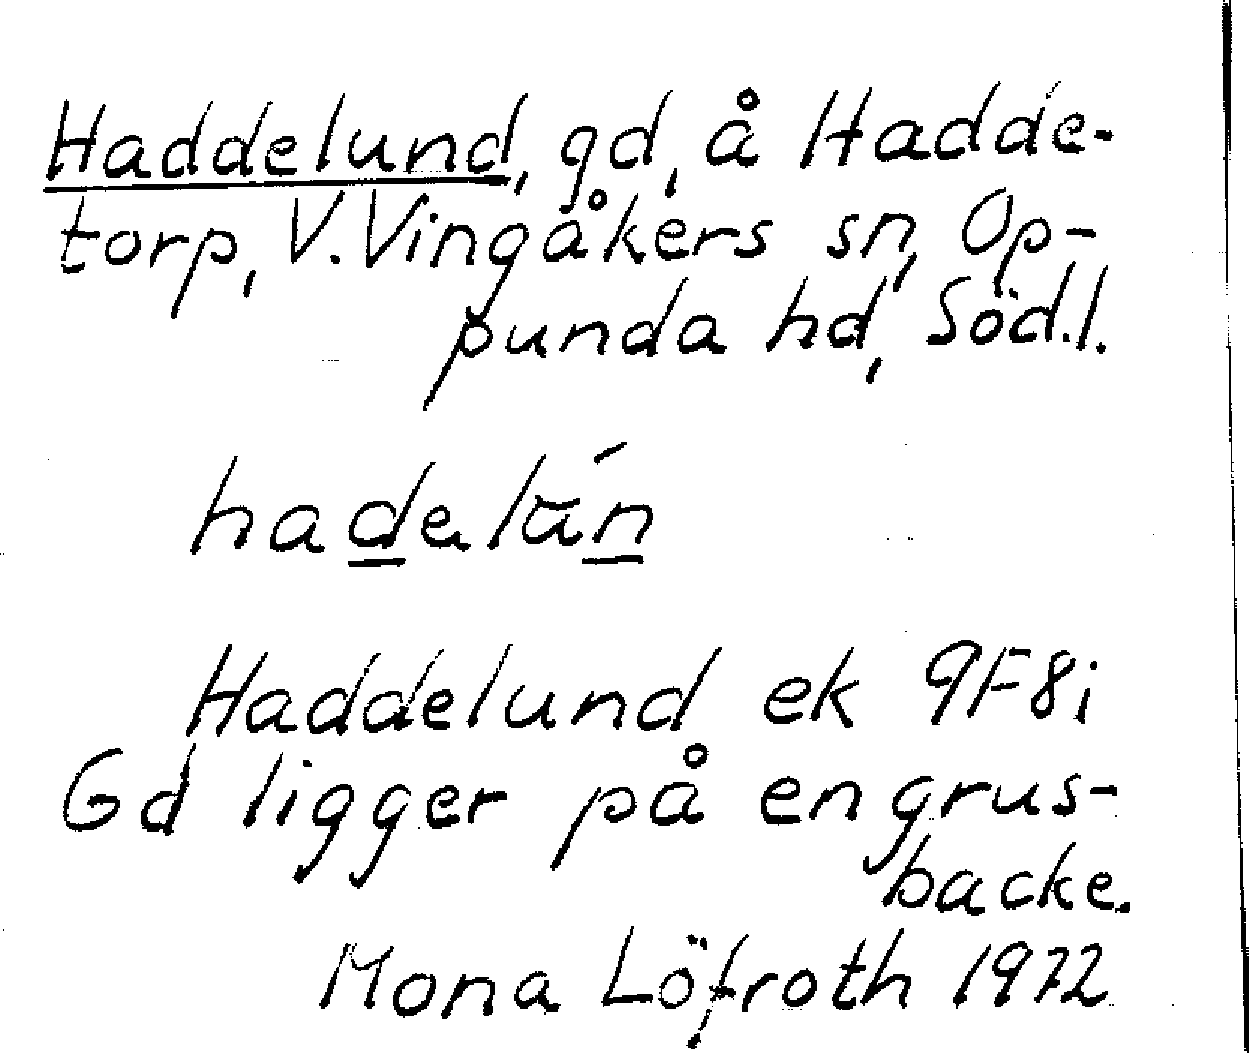 Haddelund, gd, å Hadde-
torp, V. Vingåkers sn, Op-
punda hd, Söd.l.
hadelún
Haddelund ek 9F8i
Gd ligger på en grus-
backe.
Mona Löfroth 1972